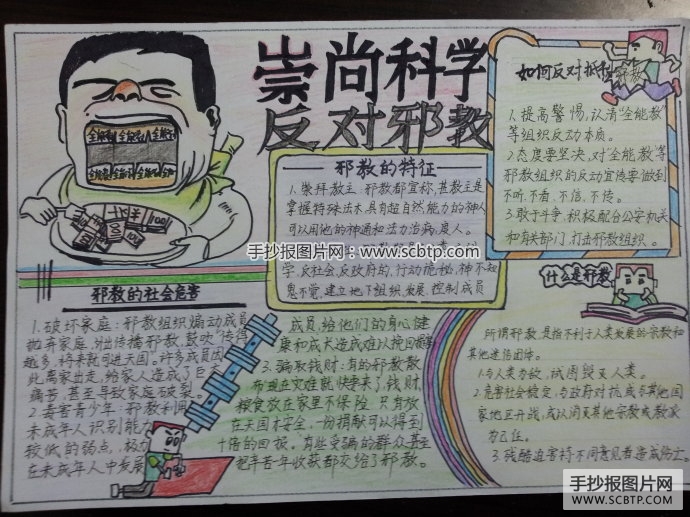 崇尚科学
反对邪教
全能教 全能教 全能教
全能教 全能教
100
邪教的特征
1.崇拜教主:邪教都宣称,其教主是
掌握特殊法术,具有超自然能力的神人
可以用他的神通和法力治病度人。
学、反社会、反政府的,行动诡秘,神不知
鬼不觉,建立地下组织,发展、控制成员
如何反对抵制邪教
1.提高警惕,认清"全能教"
等组织反动本质。
2.态度要坚决,对"全能"教等
邪教组织的反动宣传要做到
不听、不看、不信、不传。
3.敢于斗争,积极配合公安机关
和有关部门,打击邪教组织。
手抄报图片网:www.scbtp.com
邪教的社会危害
1.破坏家庭:邪教组织煽动成员
抛弃家庭,外出传播邪教,鼓吹"传得
越多,将来就可进天国。许多成员因
此离家出走,给家人造成了巨大
痛苦,甚至导致家庭破裂。
2.毒害青少年:邪教利用
未成年人识别能力
较低的弱点,极力
在未成年人中发展
成员,给他们的身心健
康和成长造成难以挽回的影
3.骗取钱财:有的邪教散
布现在灾难就快要来了,钱财,
粮食放在家里不保险,只有放
在天国才安全,一份捐献可以得到
十倍的回报,有些受骗的群众甚至
把辛苦一年收获都交给了邪教。
什么是邪教
所谓邪教,是指不利于人类发展的宗教和
其他迷信团体。
1.与人类为敌,试图毁灭人类。
2.危害社会稳定,与政府对抗,或与其他国
家地区开战,或以消灭其他宗教或教派
为己任。
3.残酷迫害持不同意见者造成伤亡。
手抄报图片网
WWW.SCBTP.COM